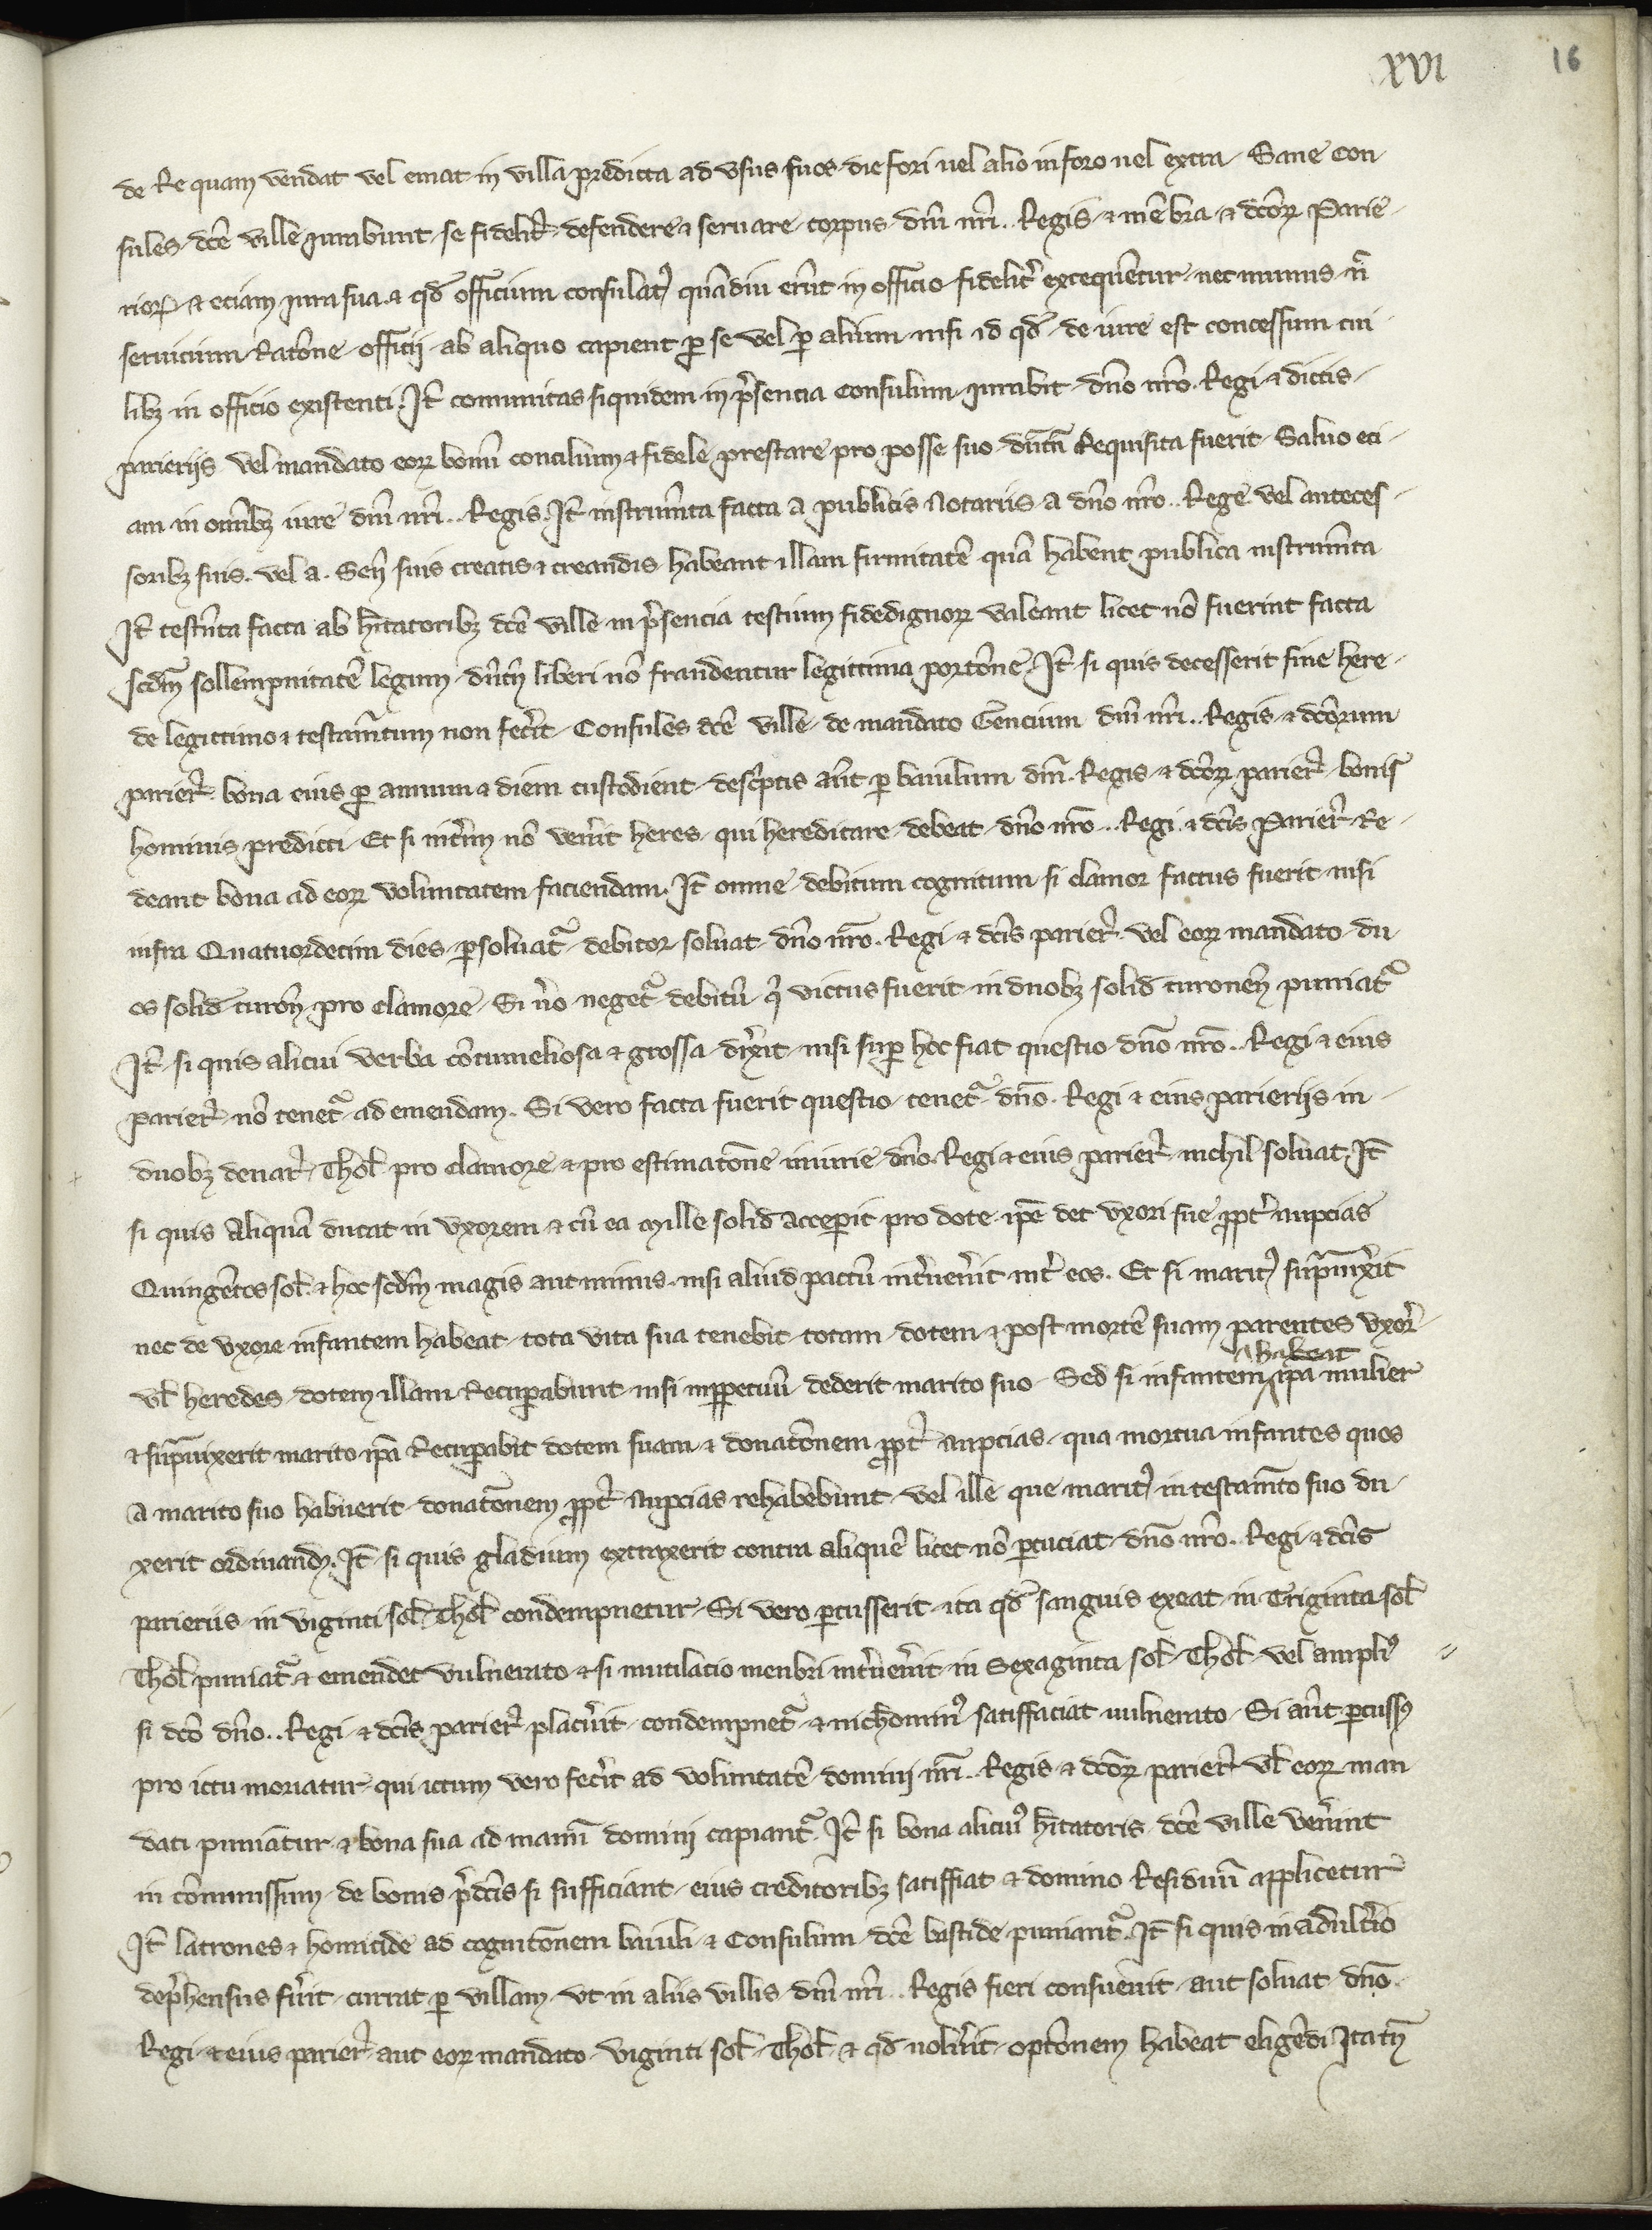 xvi
16
de re quam vendat vel emat in villa predicta ad usus suos die fori vel alio in foro vel extra. Sane con-
sules dc̄e ville iurabunt se fidelit̄ defendere & servare corpus dn̄i nr̄i Regis & mēbra & dc̄oꝝ Parie-
rioꝝ & eciam iura sua & qd̄ officium consulatꝯ quādiu erūt in officio fidelit̄ exequentur nec munus n̄
servicium racōne officij ab aliquo capient ꝑ se vel ꝑ alium nisi id qd̄ de iure est concessum cui
libꝫ in officio existenti. It̄ comunitas siquidem in p̄sencia consulum iurabit dn̄o nr̄o Regi & dictis
parierijs vel mandato eoꝝ bonū concilium & fidele prestare pro posse suo dūtn̄ Requisita fuerit. Salvo eci-
am in omībꝫ iure dn̄i nr̄i Regis. It̄ instrumīta facta a publicis notariis a dn̄o nr̄o Rege vel anteces-
soribꝫ suis vel a Sen̄ suis creatis & creandis habeant illam firmitatē quā habent publica instrumīta
It̄ testīnta facta ab hītatoribꝫ dc̄e ville in p̄sencia testium fidedignoꝝ valeant licet nō fuerint facta
scdm̄ sollempnitatē legum dūtn̄ liberi nō fraudentur legittima porcōne. It̄ si quis decesserit sine here-
de legittimo & testamītum non fec̄it Consules dc̄e ville de mandato Gencium dn̄i nr̄i Regis & dc̄orum
parier̄ bona eius ꝑ annum & diem custodient desc̄ptis aūt ꝑ baiulum dn̄i Regis & dc̄oꝝ parier̄ bonis
hominis predicti. Et si int̄im nō ven̄it heres qui hereditare debeat dn̄o nr̄o Regi & dc̄is Parier̄ Re-
deant bona ad eoꝝ voluntatem faciendam. It̄ omne debitum cognitum si clamor factus fuerit nisi
infra Quatuordecim dies ꝑsolvat̄ debitor solvat dn̄o nr̄o Regi & dc̄is parier̄ vel eoꝝ mandato du-
os solid̄ turon̄ pro clamore. Si v̄o neget̄ debitū q̇ victus fuerit in duobꝫ solid̄ turonen̄ puniat̄
It̄ si quis alicui verba cōtumeliosa & grossa dix̄it nisi suꝑ hoc fiat questio dn̄o nr̄o Regi & eius
parier̄ nō tenet̄ ad emendam. Si vero facta fuerit questio tenet̄ dn̄o Regi & eius parierijs in
duobꝫ denar̄ Thol̄ pro clamore & pro estimacōne iniurie dn̄o Regi & eius parier̄ nichil solvat. It̄
si quis aliquā ducat in uxorem & cū ea mille solid̄ acceperit pro dote ip̄e det uxori sue ꝓpt̄ nupcias
Quingētos sol̄ & hoc scdm̄ magis aut minus nisi aliud pactū int̄ven̄it int̄ eos. Et si maritꝯ suꝑvix̄it
nec de uxore infantem habeat tota vita sua tenebit totam dotem & post mortē suam parentes uxor̄
vl̄ heredes dotem illam Recuꝑabunt nisi inꝑpetuū dederit marito suo. Sed si infantem habeat ip̄a mulier
& suꝑvixerit marito ip̄a Recuꝑabit dotem suam & donacōnem ꝓpt̄ nupcias qua mortua infantes quos
a marito suo habuerit donacōnem ꝓpt̄ nupcias rehabebunt vel ille que maritꝯ in testamīto suo du-
xerit ordinand̄. It̄ si quis gladium extraxerit contra aliquē licet nō ꝑcuciat dn̄o nr̄o Regi & dc̄is
parieriis in viginti sol̄ Thol̄ condempnetur. Si vero ꝑcusserit ita qd̄ sanguis exeat in Triginta sol̄
Thol̄ puniat̄ & emendet vulnerato & si mutilacio menbri int̄ven̄it in Sexaginta sol̄ Thol̄ vel ampliꝯ
si dc̄o dn̄o Regi & dc̄is parier̄ plac̄uit condempnet̄ & nichominꝯ satisfaciat vulnerato. Si aūt ꝑcussꝯ
pro ictu moriatur qui ictum vero fec̄it ad voluntatē domini nr̄i Regis & dc̄oꝝ parier̄ vl̄ eoꝝ man
dati puniatur & bona sua ad manū domini capiant̄. It̄ si bona alicuiꝯ hītatoris dc̄e ville ven̄int
in cōmmissum de bonis p̄dc̄is si sufficiant eius creditoribꝫ satisfiat & domino Residuū applicetur
It̄ latrones & homicide ad cognicōnem baiuli & Consulum dc̄e bastide puniant̄. It̄ si quis in adult̄io
dep̄hensus fūit currat ꝑ villam ut in aliis villis dn̄i nr̄i Regis fieri consuevit aut solvat dn̄o
Regi & eius parier̄ aut eoꝝ mandato viginti sol̄ Thol̄ & qd̄ volūit opcōnem habeat eligēdi Itatn̄